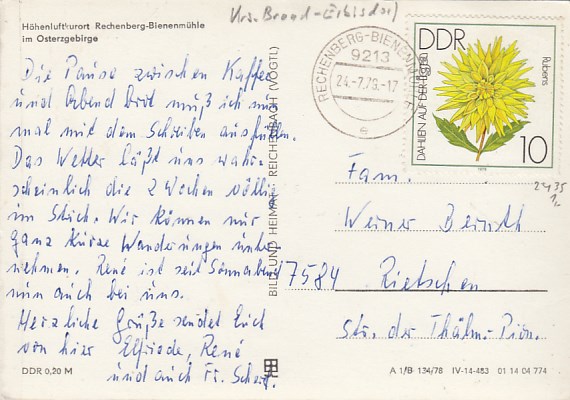 Höhenluftkurort Rechenberg-Bienenmühle
im Osterzgebirge
Krs. Brand-Erbisdorf
RECHENBERG-BIENENMÜHLE
9213
24.-7.79.-17
e
DDR
DAHLIEN AUF DER
Rubens
10
1979
2435
Die Pause zwischen Kaffee
und Abendbrot muß ich nun
mal mit dem Schreiben ausfüllen.
Das Wetter läßt uns wahr-
scheinlich die 2 Wochen völlig
im Stich. Wir können nur
ganz kurze Wanderungen unter-
nehmen. René ist seit Sonnabend
nun auch bei uns.
Herzliche Grüße sendet Euch
von hier Elfriede, René
und auch Fr. Scherf.
BILD UND HEIMAT REICHENBACH (VOGTL)
Fam.
Werner Bernth
7584 Rietschen
Str. der Thälm.-Pion.
DDR 0,20 M
A 1/B 134/78 IV-14-483 01 14 04 774